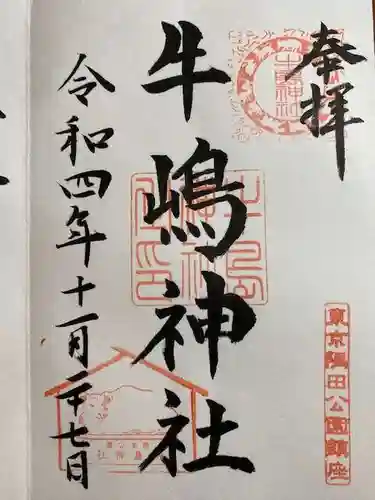 奉拝
東京隅田公園鎮座
牛嶋神社
令和四年十一月二十七日